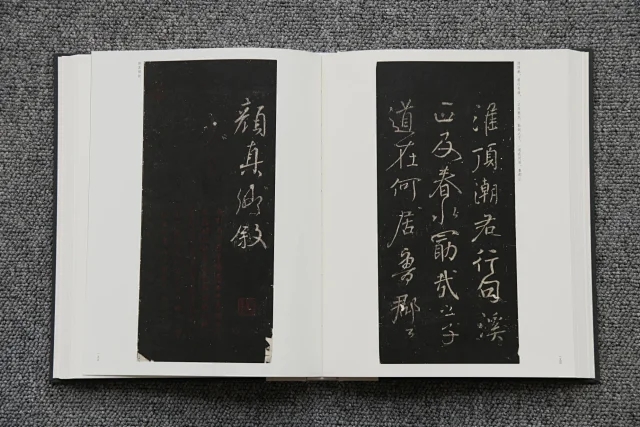 淮頂潮君行句溪
正及春水勖哉之子
道在何居魯郡公
顏真卿敘